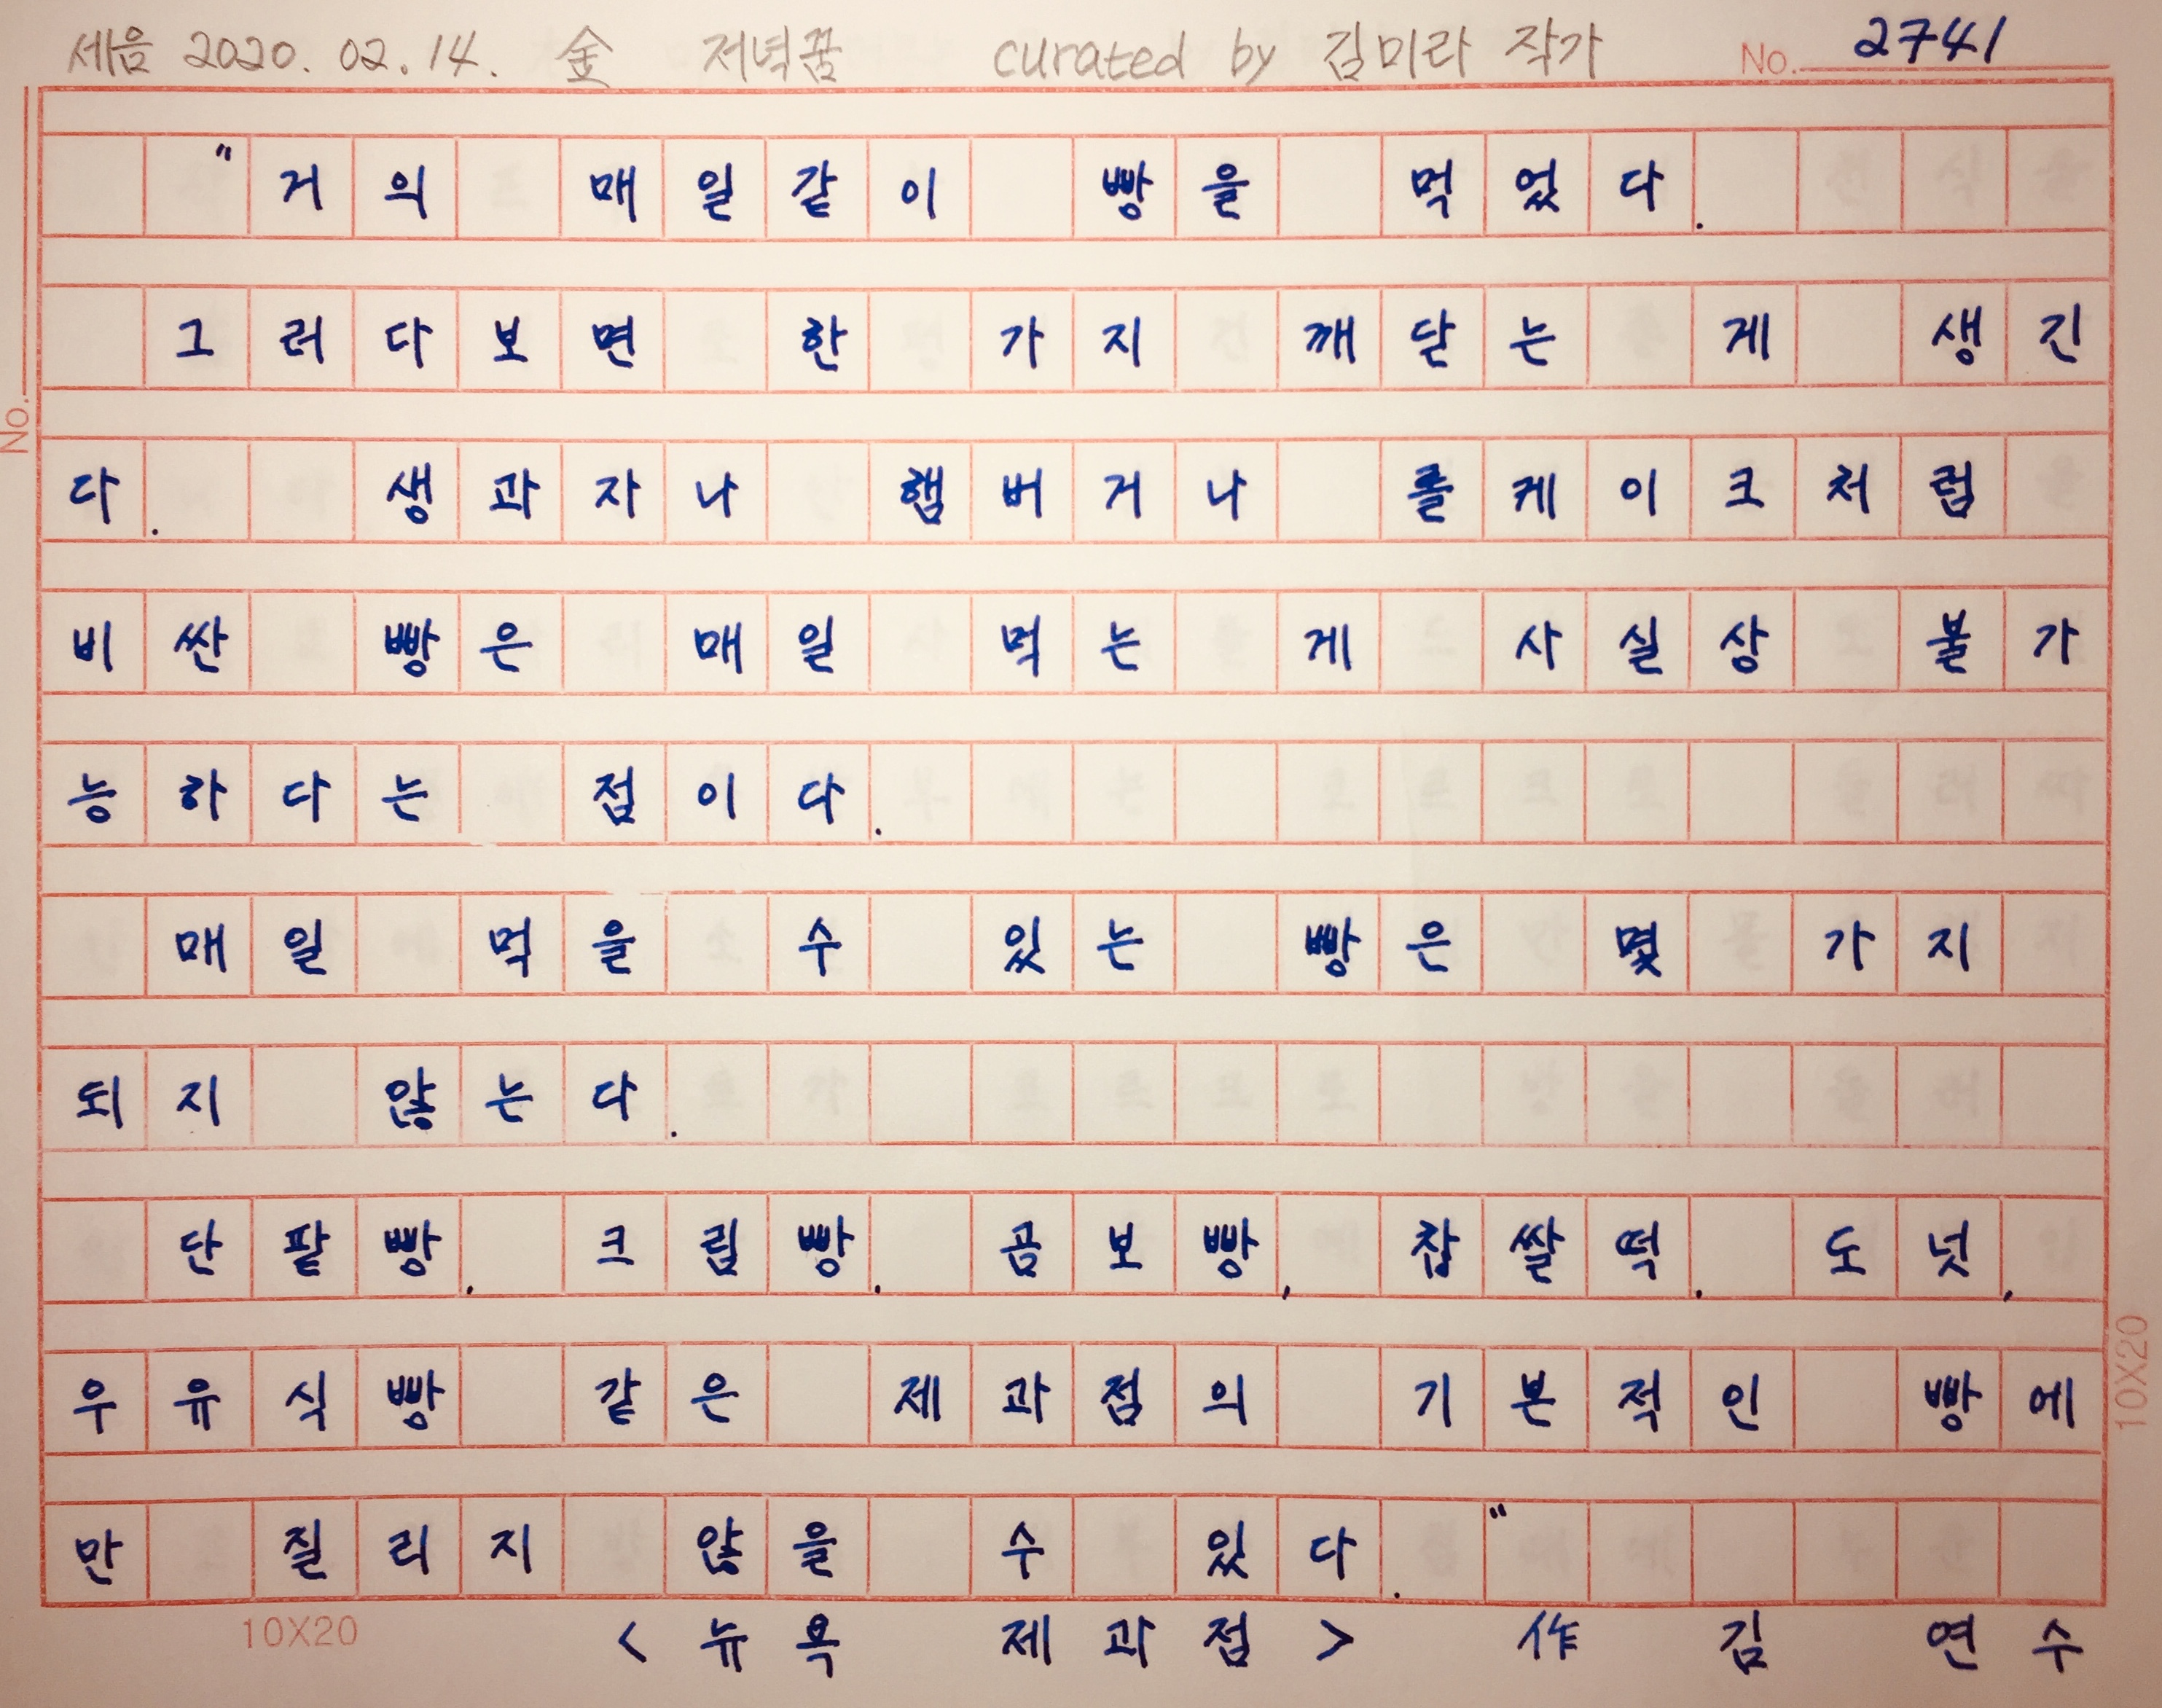 세음 2020. 02. 14. 金 저녁꿈 curated by 김미라 작가 No. 2741
"거의 매일같이 빵을 먹었다.
그러다보면 한 가지 깨닫는 게 생긴
다. 생과자나 햄버거나 롤케이크처럼
비싼 빵은 매일 먹는 게 사실상 불가
능하다는 점이다.
매일 먹을 수 있는 빵은 몇 가지
되지 않는다.
단팥빵, 크림빵, 곰보빵, 찹쌀떡, 도넛,
우유식빵 같은 제과점의 기본적인 빵에
만 질리지 않을 수 있다."
<뉴욕 제과점> 作 김연수
No.
10X20
10X20